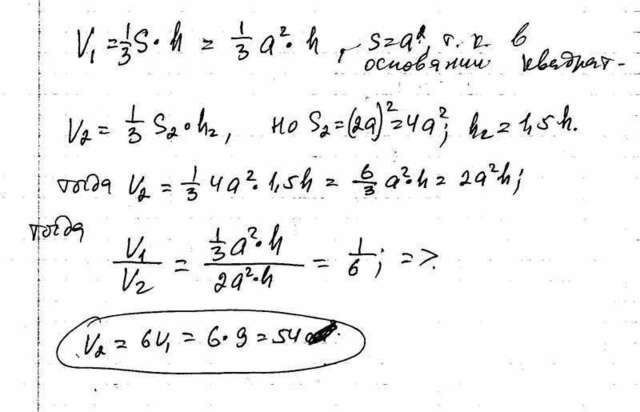 V₁ = 1/3 S · h = 1/3 a² · h, S = a², т. к. в
основании квадрат-
V₂ = 1/3 S₂ · h₂, но S₂ = (2a)² = 4a²; h₂ = 1,5h.
тогда V₂ = 1/3 4a² · 1,5h = 6/3 a² · h = 2a²h;
тогда
V₁/V₂ = (1/3 a² · h)/(2a² · h) = 1/6; =>
V₂ = 6V₁ = 6 · 9 = 54